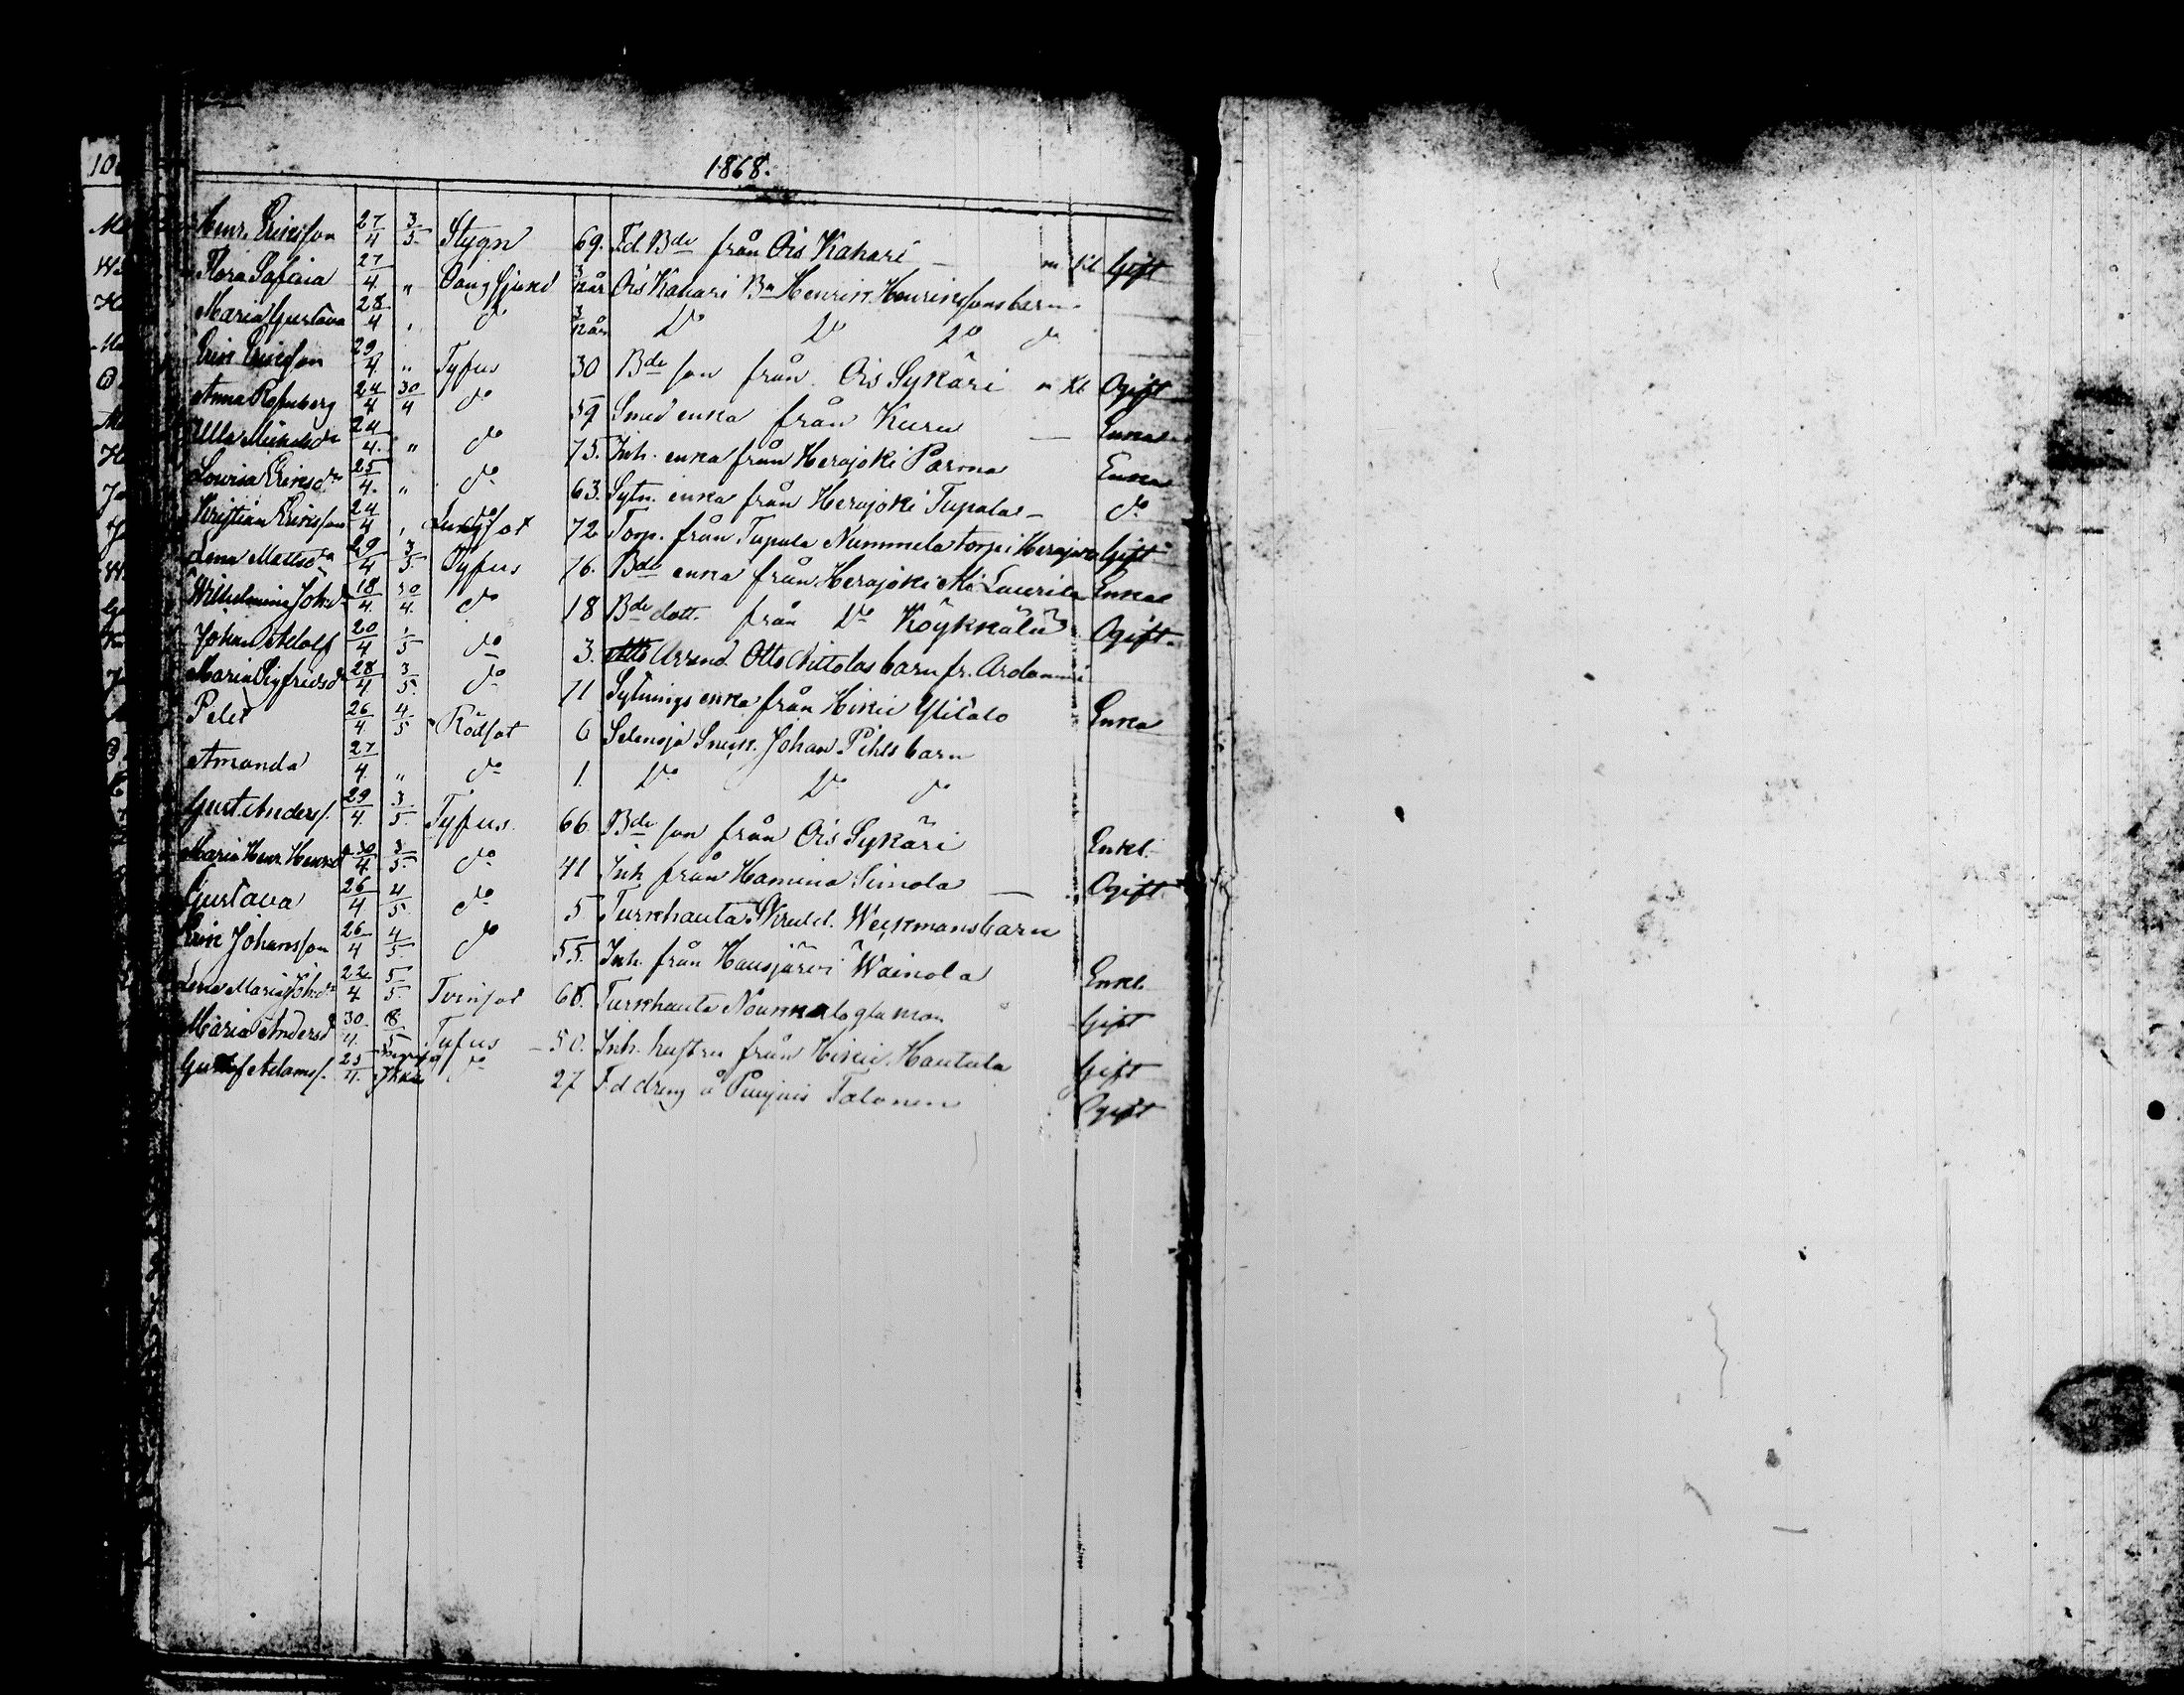 10
1868.
Henr. Ericsson 27/4 3/5 Stygn 69. F.d. Bde från Ois Kahari — m Kl Gift
Flora Sofia 27/4 „ Oäng Sjukd 3/12 år Ois Kahari Bn Henrik Henrikssons barn
Maria Gustava 28/4 „ do 3/12 år Do Do Do do
Erik Ericsson 29/4 „ Tyfus 30 Bde son från Ois Sykäri m Kl Ogift
Anna Rosenberg 24/4 30/4 do 59 Smed enka från Kuru — Enka
Ulla Michelsdr 24/4. „ do 75. Inh. enka från Herajoki Parma Enka
Lovisa Ericsdr 25/4. „ do 63. Sytn. enka från Herajoki Tupala — do
Kristian Ericsson 24/4 „ Lungsot 72 Torp. från Tupala Nummela torp i Herajoki Gift
Lena Mattsdr 29/4 3/5 Tyfus 76. Bde enka från Herajoki Ali Laurila Enka
Wilhelmina Joh.dr 18/4. 30/4. do 18 Bde dott. från Do Köykkälä Ogift.
Johan Adolf 20/4 1/5 do 3. Arrend. Otto barn fr.
Maria Sigfridsdr 28/4 3/5. do 71 Sytnings enka från Hikiä Ylitalo Enka
Peter 26/4. 4/5 Rödsot 6 Selänoja Snick. Johan Pihls barn
Amanda 27/4. „ do 1. Do Do do
Gust. Anders s. 29/4. 3/5. Tyfus. 66 Bde son från Ois Sykäri Enkl.
Maria Henr. Henr.dr 30/4. 3/5. do 41 Inh. från Hamina Simola — Ogift.
Gustava 26/4 4/5. do 5 Turkhauta Weckmans barn
Erik Johansson 26/4 4/5. do 55. Inh. från Hausjärvi Wäinola Enkl.
Lena Maria Joh.dr 22/4 5/5. Tvinsot 68. Turkhauta Gift
Maria Andersdr 30/4. 8/5 Tyfus — 50. Inh. hustru från Hikiä Hautala Gift
Gustaf Adams s. 25/4. do 27 F.d. dreng å Puujois Talonen Ogift